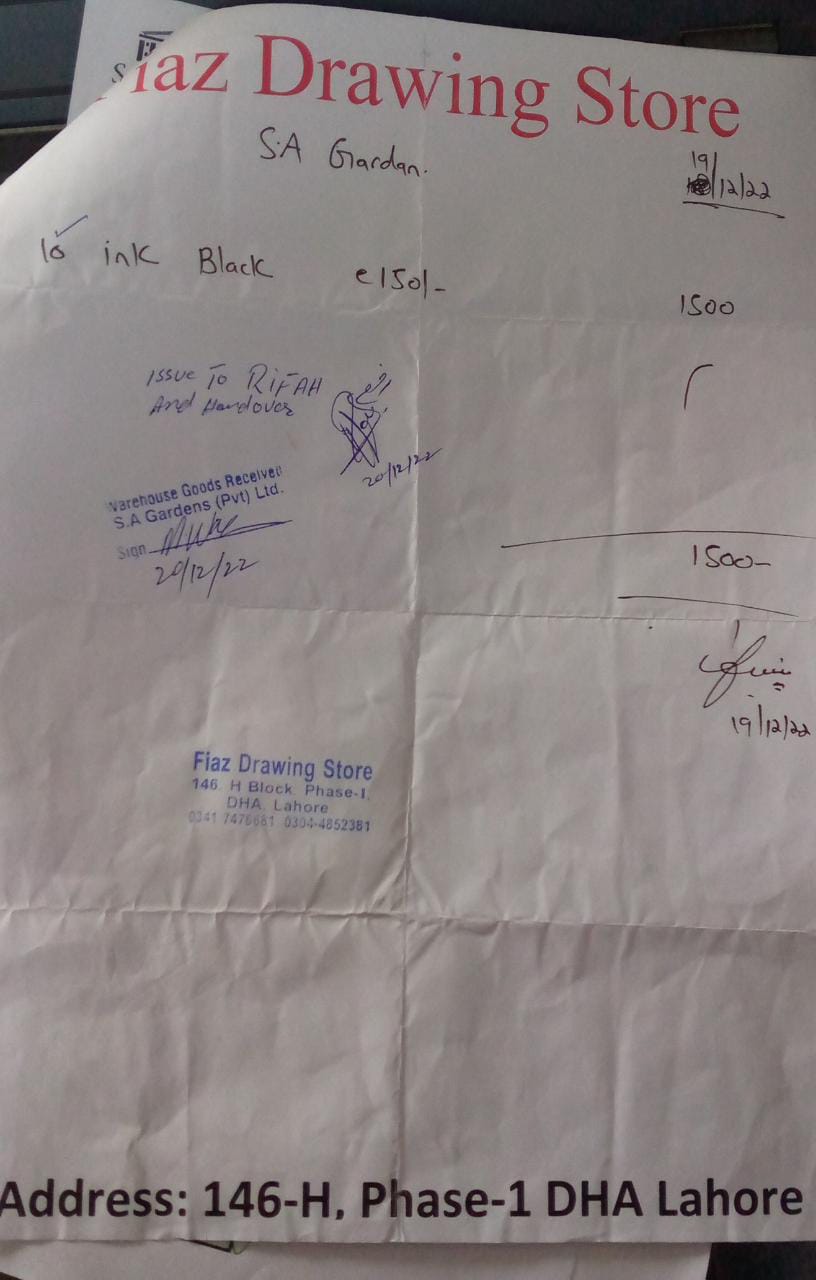 Fiaz Drawing Store
S.A Gardan.
19/12/22
10 ink Black @150/- 1500
Issue To RiFAH
And Handover
20/12/22
Warehouse Goods Received
S.A Gardens (Pvt) Ltd.
Sign
20/12/22
1500-
19/12/22
Fiaz Drawing Store
146, H Block, Phase-I,
DHA, Lahore
0341 7476681 0304-4852381
Address: 146-H, Phase-1 DHA Lahore